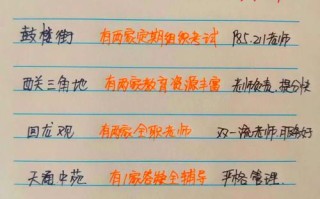 鼓楼街 有两家定期组织考试 985.211老师
西关三角地 有两家教育资源丰富 老师负责、提分快
回龙观 有两家全职老师 双一流老师 服务好
天通中苑 有1家答疑全辅导 严格管理